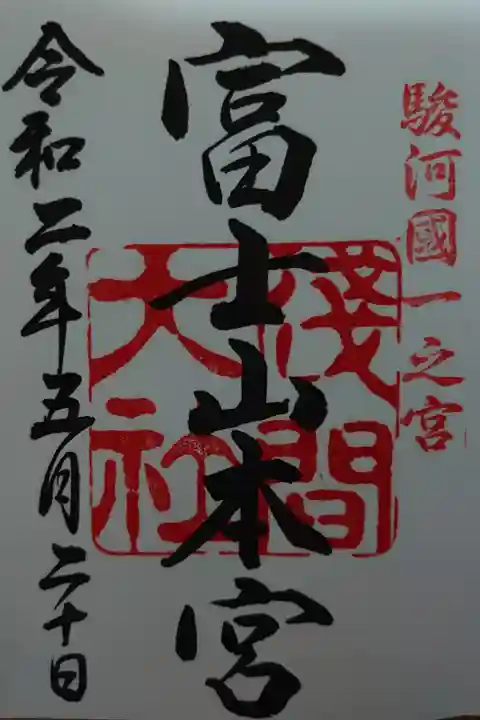 駿河國一之宮
富士山本宮
淺間
大社
令和二年五月二十日